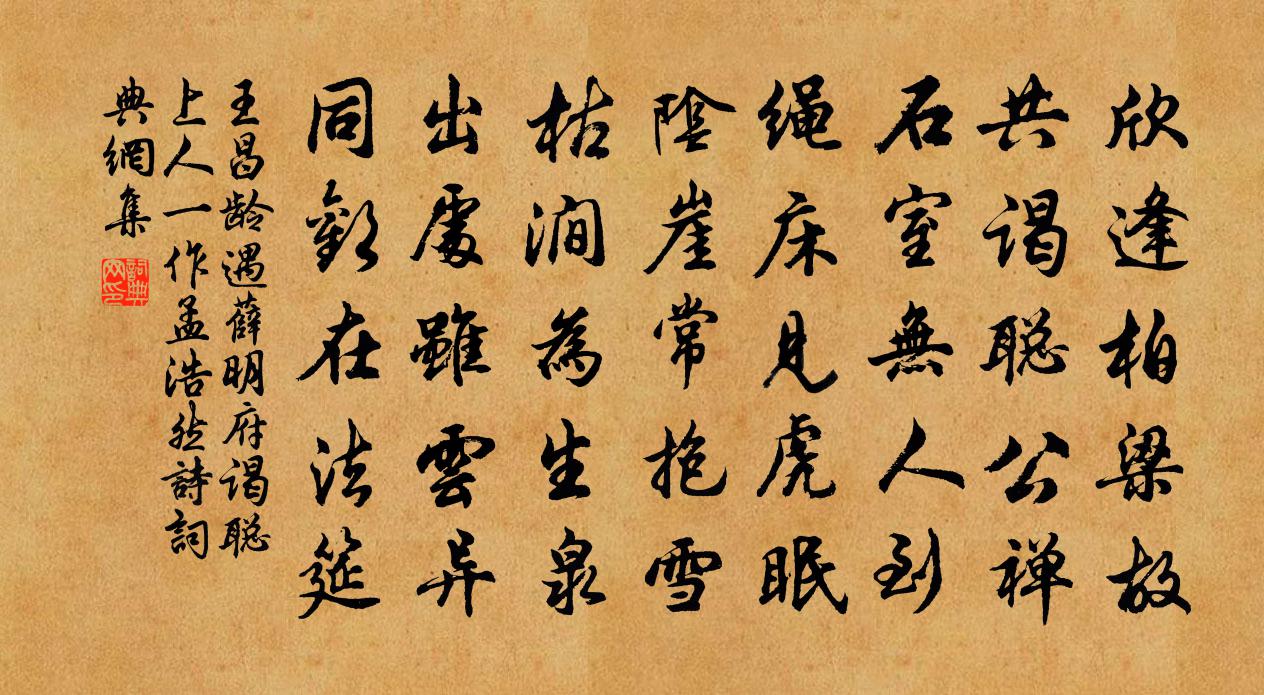 欣逢柏梁故
共谒聪公禅
石室無人到
绳床見虎眠
陰崖常抱雪
枯澗為生泉
出處雖雲异
同歡在法筵
王昌龄遇薛明府谒聪
上人一作孟浩然詩詞
典網集
詞典
网印